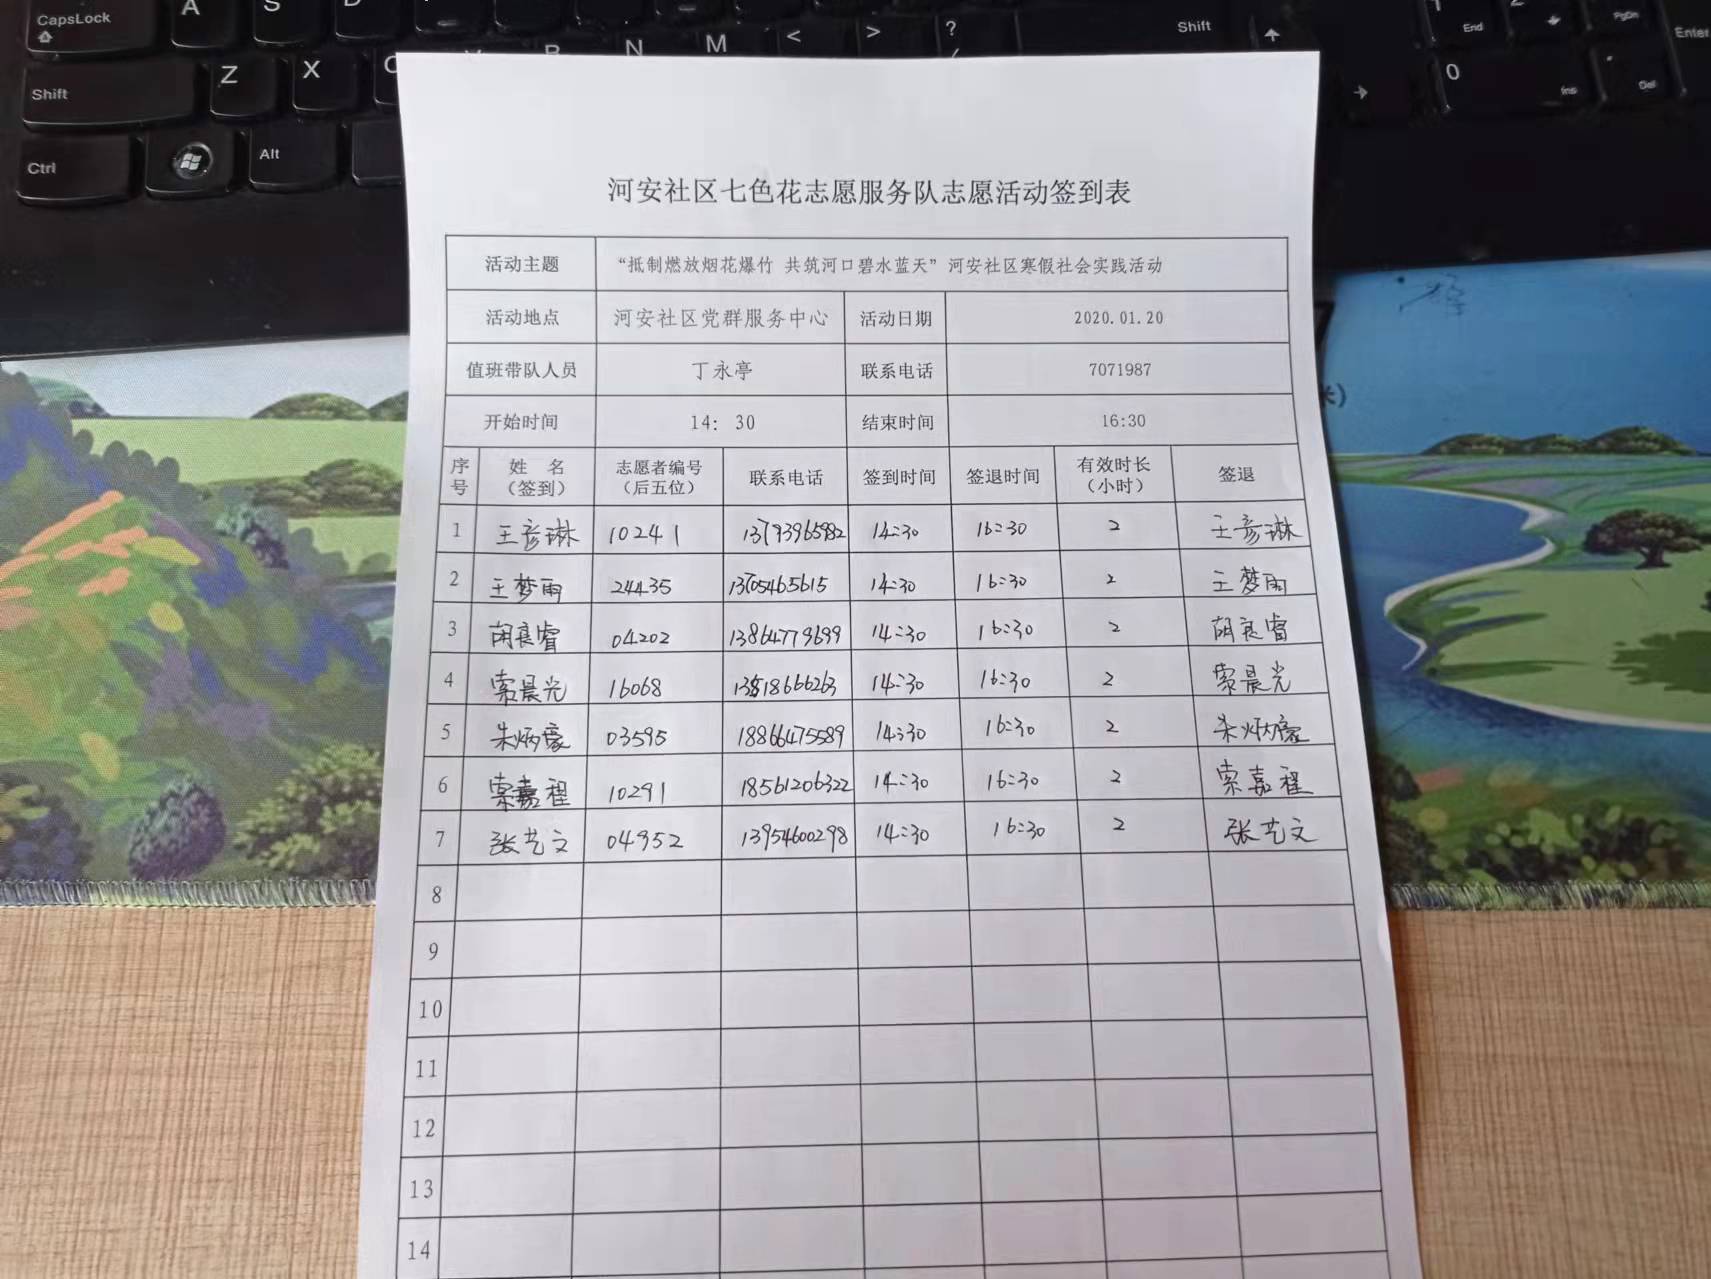 CapsLock A S D
Shift Z X C V B N M < > ? Shift
Ctrl Alt
End PgDn Enter
0 Ins Del
河安社区七色花志愿服务队志愿活动签到表
活动主题 “抵制燃放烟花爆竹 共筑河口碧水蓝天”河安社区寒假社会实践活动
活动地点 河安社区党群服务中心 活动日期 2020.01.20
值班带队人员 丁永亭 联系电话 7071987
开始时间 14: 30 结束时间 16:30
序号 姓 名（签到） 志愿者编号（后五位） 联系电话 签到时间 签退时间 有效时长（小时） 签退
1 王彦琳 10241 13793965982 14:30 16:30 2 王彦琳
2 王梦雨 24435 13705465615 14:30 16:30 2 王梦雨
3 胡良睿 04202 13864779699 14:30 16:30 2 胡良睿
4 索晨光 16068 14:30 16:30 2 索晨光
5 朱炳豪 03595 18866475589 14:30 16:30 2 朱炳豪
6 索嘉程 10291 18561206322 14:30 16:30 2 索嘉程
7 张艺文 04952 13954600298 14:30 16:30 2 张艺文
8
9
10
11
12
13
14